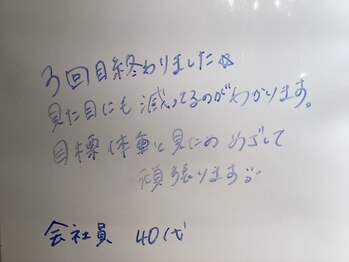 3回目終わりました☆
見た目にも減ってるのがわかります。
目標体重と見ため めざして
頑張ります
会社員 40代